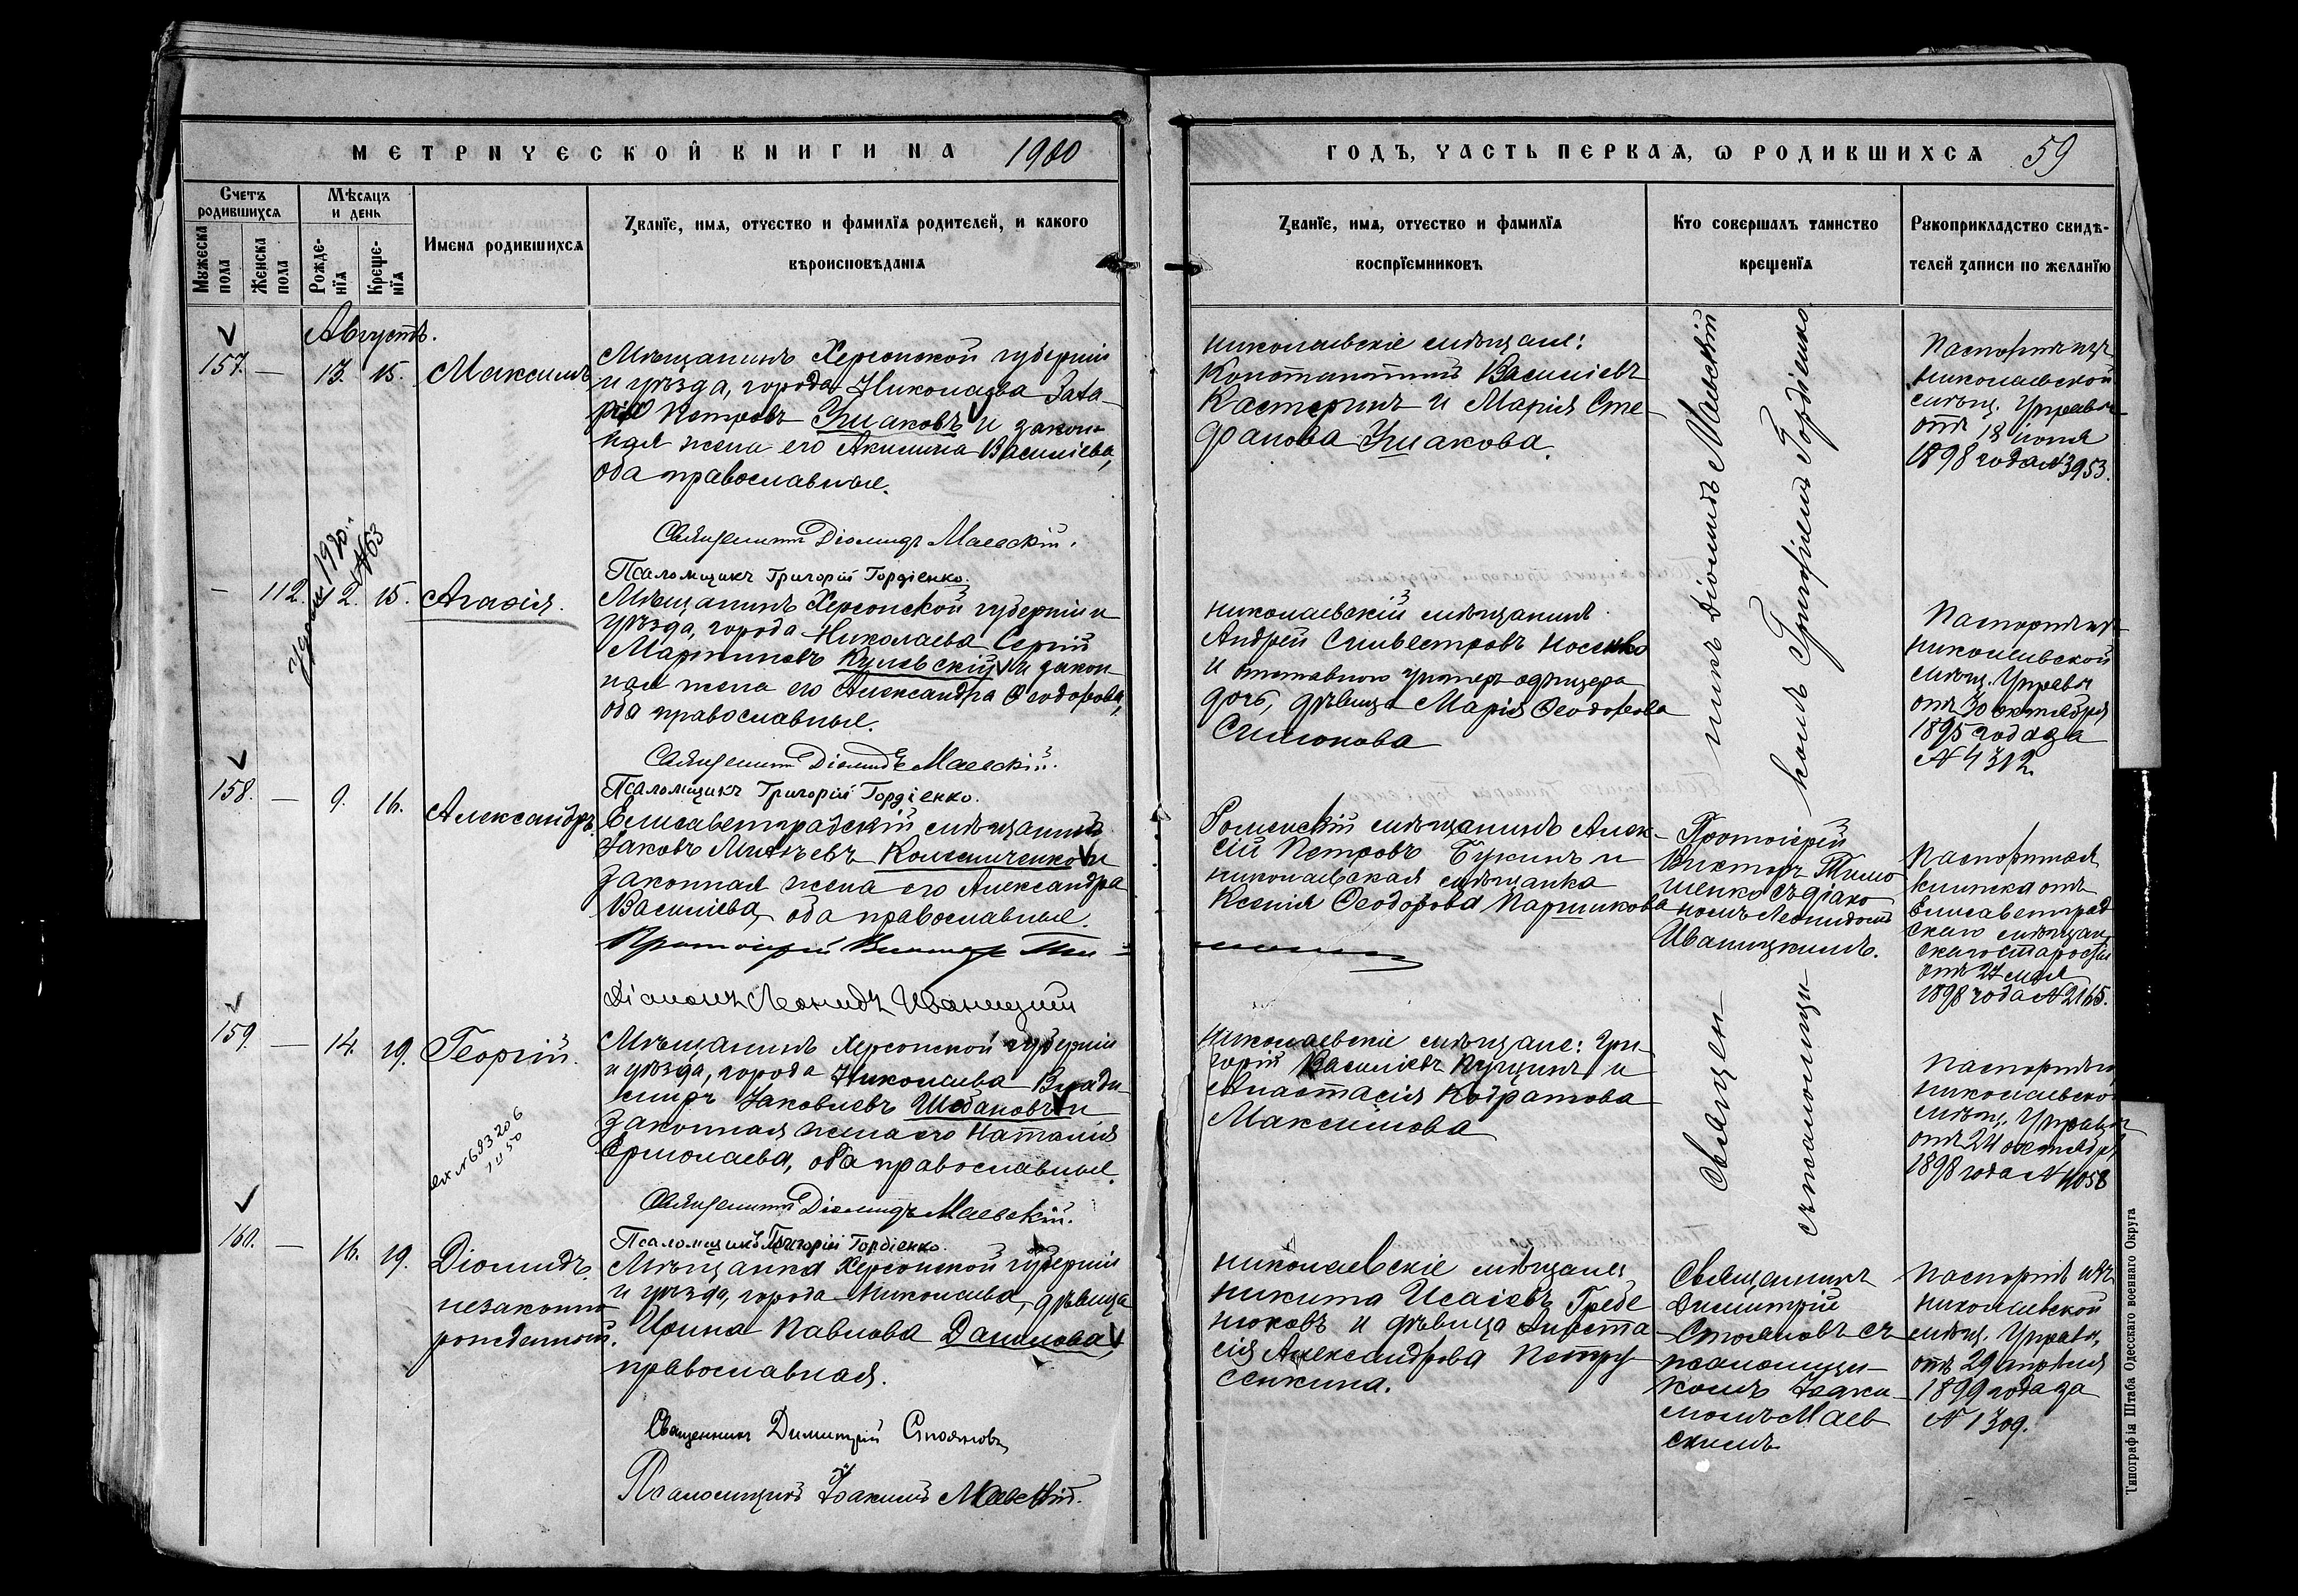 МЕТРИЧЕСКОЙ КНИГИ НА 1900
ГОДЪ, ЧАСТЬ ПЕРВАЯ, О РОДИВШИХСЯ 59
Счетъ родившихся
Мужеска пола
Женска пола
Мѣсяцъ и день
Рожденїя
Крещенїя
Имена родившихся
Званїе, имя, отчество и фамилїя родителей, и какого
вѣроисповѣданія
Званїе, имя, отчество и фамилїя
воспрїемниковъ
Кто совершалъ таинство
крещенїя
Рукоприкладство свидѣ-
телей записи по желанїю
Августъ.
157. — 13. 15. Максимъ
Мѣщанинъ Херсонской губерніи
и уѣзда, города Николаева Заха-
рія Петровъ Ушаковъ и закон-
ная жена его Акилина Василіева,
оба православные.
Священникъ Діомидъ Маевскій.
Псаломщикъ Григорій Гордіенко.
Николаевскіе мѣщане:
Константинъ Василіевъ
Кастеринъ и Марія Сте-
фанова Ушакова.
Священ-
никъ Діомидъ Маевскій
съ псаломщи-
комъ Григоріемъ Гордіенко
Паспортъ изъ
Николаевской
мѣщ. Управы
отъ 18 іюня
1898 года №3953.
— 112. 2. 15. Агафія.
Мѣщанинъ Херсонской губерніи и
уѣзда, города Николаева Сергій
Мартиновъ Кулевскій и закон-
ная жена его Александра Ѳеодорова,
оба православные.
Священникъ Діомидъ Маевскій.
Псаломщикъ Григорій Гордіенко.
Николаевскій мѣщанинъ
Андрей Сильвестровъ Носенко
и отставного унтеръ-офицера
дочь, дѣвица Марія Ѳеодорова
Симонова
Паспортъ изъ
Николаевской
мѣщ. Управы
отъ 30 октября
1895 года за
№ 4312.
158. — 9. 16. Александръ.
Елисаветградскій мѣщанинъ
Іаковъ Миньевъ Колесниченко и
законная жена его Александра
Василіева, оба православные.
Протоіерей Викторъ
Діаконъ Леонидъ Иваницкій
Роменскій мѣщанинъ Алек-
сій Петровъ Букинъ и
николаевская мѣщанка
Ксенія Ѳеодорова Паршикова
Протоіерей
Викторъ Тимо
шенко съ діако
номъ Леонидомъ
Иваницкимъ.
Паспортная
книжка отъ
Елисаветград
скаго мѣщан
скаго старосты
отъ 27 мая
1898 года № 2165.
159. — 14. 19. Георгій.
Мѣщанинъ Херсонской губерніи
и уѣзда, города Николаева Влади-
миръ Іаковлевъ Шабановъ и
законная жена его Наталія
Ермолаева, оба православные.
Священникъ Діомидъ Маевскій.
Псаломщикъ Григорій Гордіенко.
Николаевскіе мѣщане: Гри-
горій Василіевъ Пущинъ и
Анастасія Кодратова
Максимова
Николаевской
мѣщ. Управы
отъ 24 октября
1898 года № 4058
160. — 16. 19. Діомидъ.
незаконно-
рожденный.
Мѣщанка Херсонской губерніи
и уѣзда, города Николаева, дѣвица
Ирина Павлова Данилова,
православная.
Священникъ Димитрій Стояновъ
Псаломщикъ Іоакимъ Маевскій.
Николаевскіе мѣщане
Никита Исаіевъ Гребе
нюковъ и дѣвица Анаста
сія Александрова Петру-
сенкина.
Священникъ
Димитрій
Стояновъ съ
псаломщи-
комъ Іоаки-
момъ Маев
скимъ.
Паспортъ изъ
Николаевской
мѣщ. Управы,
отъ 29 апрѣля
1899 года за
№ 1309.
Типографія Штаба Одесскаго военнаго Округа